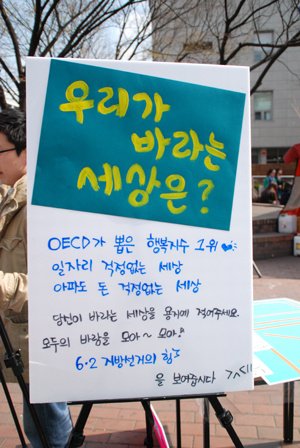 우리가
바라는
세상은?
OECD가 뽑은 행복지수 1위
일자리 걱정없는 세상
아파도 돈 걱정없는 세상
당신이 바라는 세상을 용지에 적어주세요.
모두의 바람을 모아~ 모아
6·2 지방선거의 힘
을 보여줍시다